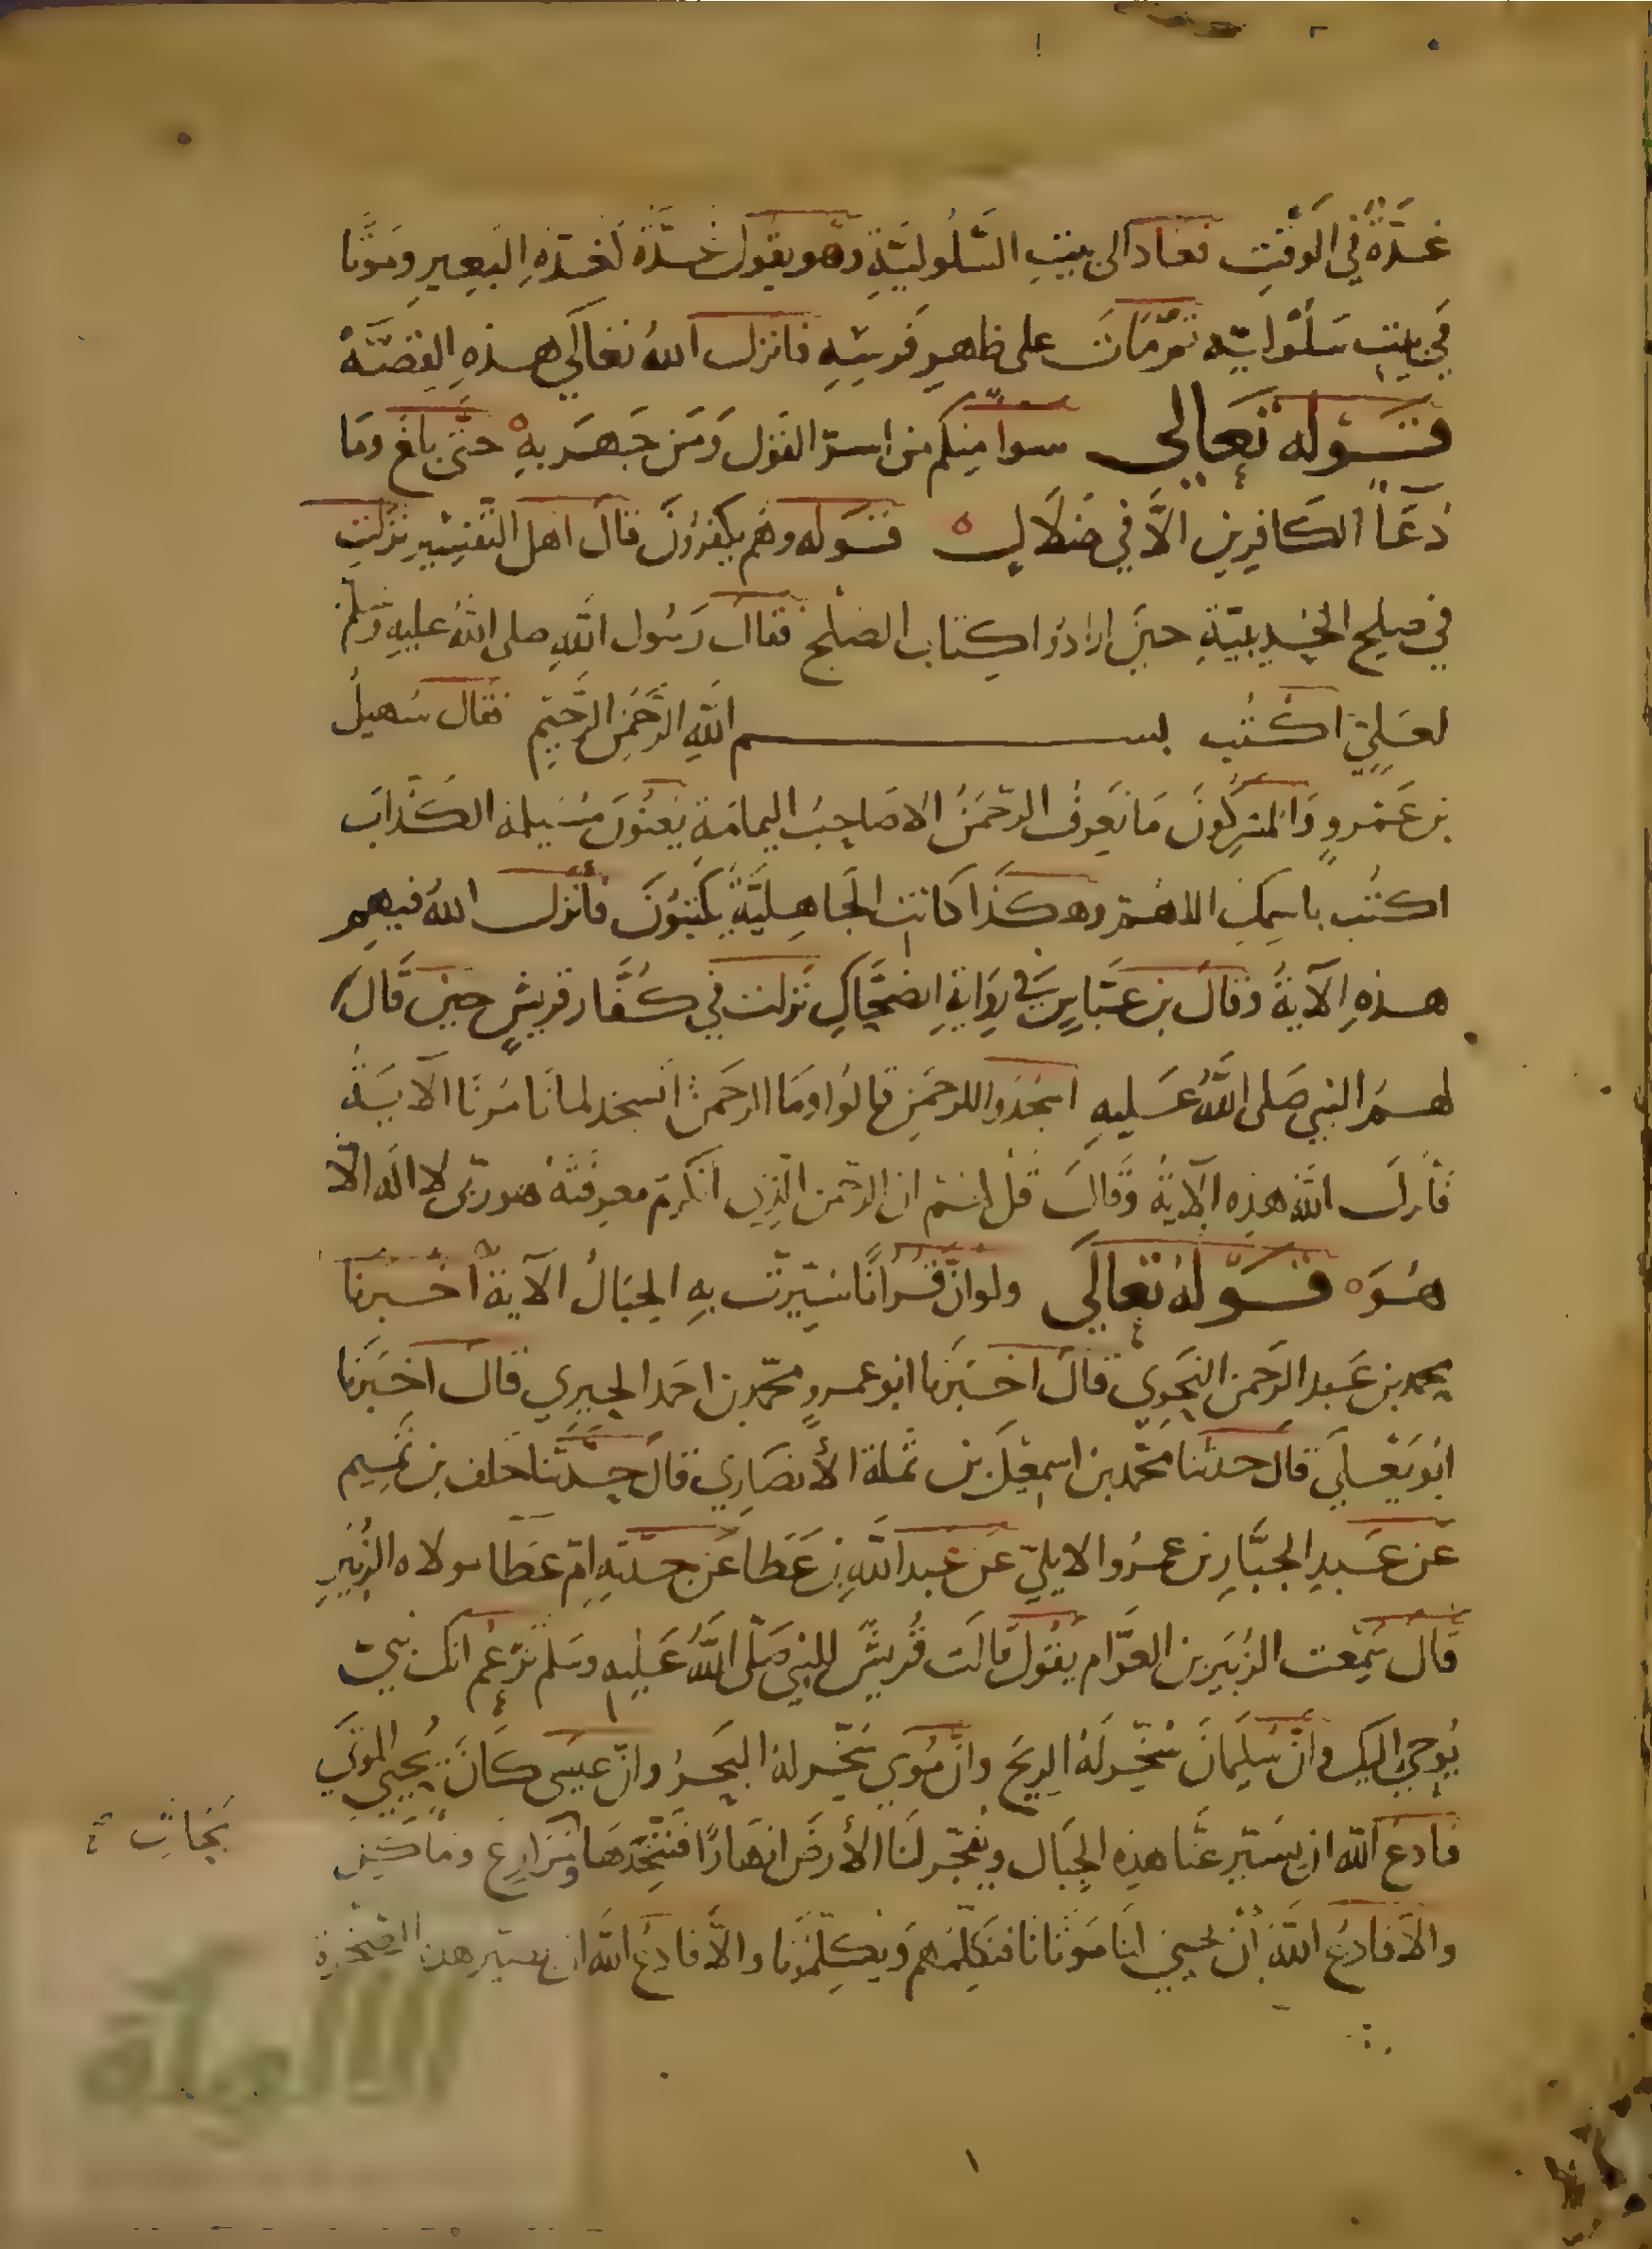 غدة في الوقت فعاد الى بيت السلولية وهو يقول غدة كغدة البعير وموتا
في بيت سلولية ثم مات على ظهر فرسه فانزل الله تعالى هذه القصة
قوله تعالى سوا منكم من اسر القول ومن جهر به حتى بلغ وما
دعا الكافرين الا في ضلال قوله وهم يكفرون قال اهل التفسير نزلت
في صلح الحديبية حين ارادوا كتاب الصلح فقال رسول الله صلى الله عليه وسلم
لعلي اكتب بسم الله الرحمن الرحيم فقال سهيل
بن عمرو والمشركون ما نعرف الرحمن الا صاحب اليمامة يعنون مسيلمة الكذاب
اكتب باسمك اللهم وهكذا كانت الجاهلية يكتبون فأنزل الله فيهم
هذه الآية وقال بن عباس في رواية الضحاك نزلت في كفار قريش حين قال
لهم النبي صلى الله عليه اسجدوا للرحمن قالوا وما الرحمن انسجد لما تامرنا الآية
فأنزل الله هذه الآية وقال قل لهم ان الرحمن الذي انكرتم معرفته هو ربي لا اله الا
هو قوله تعالى ولو ان قرآنا سيرت به الجبال الآية أخبرنا
محمد بن عبد الرحمن النحوي قال اخبرنا ابو عمرو محمد بن احمد الحيري قال اخبرنا
ابو يعلي قال حدثنا محمد بن اسمعيل بن ثملة الأنصاري قال حدثنا خلف بن تميم
عن عبد الجبار بن عمرو الايلي عن عبد الله بن عطا عن جدته ام عطا مولاه الزبير
قال سمعت الزبير بن العوام يقول قالت قريش للنبي صلى الله عليه وسلم تزعم انك نبي
يوحي اليك وان سليمان سخر له الريح وان موسي سخر له البحر وان عيسى كان يحيي الموتي
فادع الله ان يسير عنا هذه الجبال ويفجر لنا الأرض انهارا فنتخذها ومزارع وماكل
محارث
والا فادع الله أن يحيي لنا موتانا فنكلمهم ويكلمونا والا فادع الله ان يصير هذه الصخرة